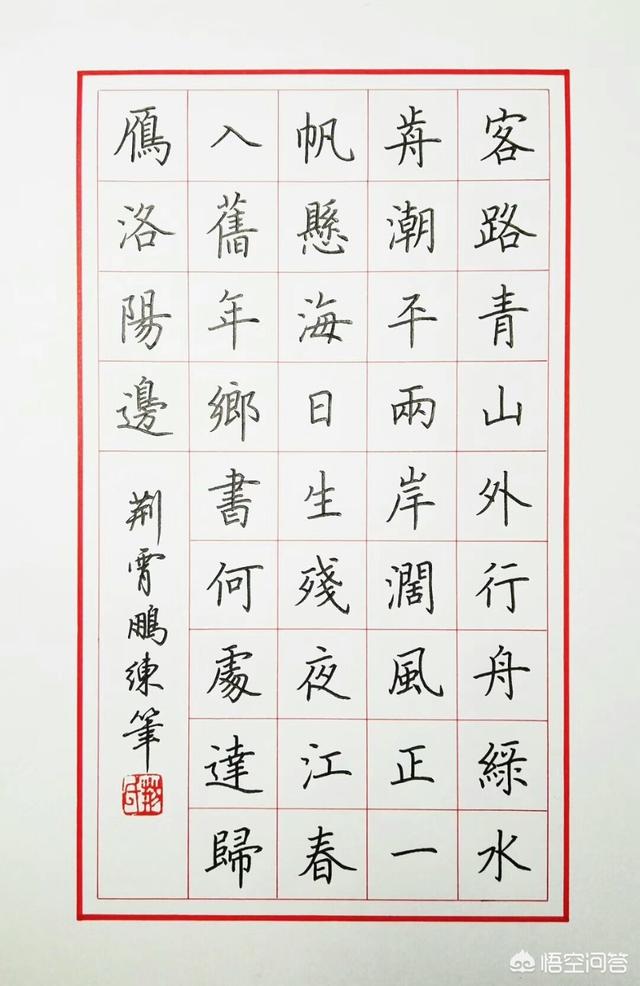 客路青山外行舟綠水
歬潮平兩岸濶風正一
帆懸海日生殘夜江春
入舊年鄉書何處達歸
鴈洛陽邊
荆霄鵬練筆
悟空问答